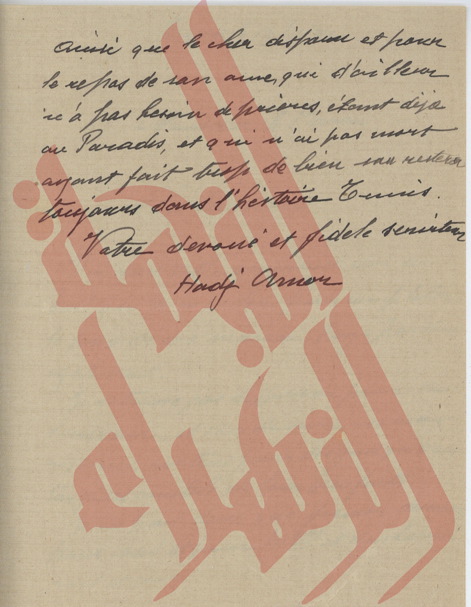 ainsi que le cher disparu et pour
le repos de son ame, qui d'ailleurs
n'a pas besoin de prières, étant déjà
au Paradis, et qui n'ai pas mort
ayant fait trop de bien son restera
toujours dans l'histoire Tunis.
Votre devoué et fidele serviteur
Hadj Amor
النجمة
الزهراء